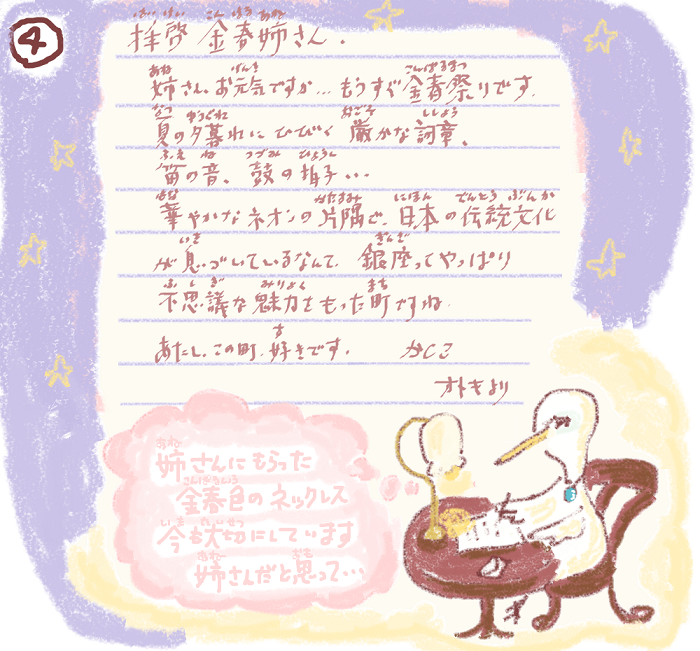 4
拝啓 金春姉さん.
姉さん、お元気ですか… もうすぐ金春祭りです.
夏の夕暮れに ひびく 厳かな詞章、
笛の音、鼓の拍子…
華やかなネオンの片隅で、日本の伝統文化
が息づいているなんて、銀座ってやっぱり
不思議な魅力をもった町ですね.
あたし、この町、好きです. かしこ
オトキより
姉さんにもらった
金春色のネックレス
今も大切にしています
姉さんだと思って…